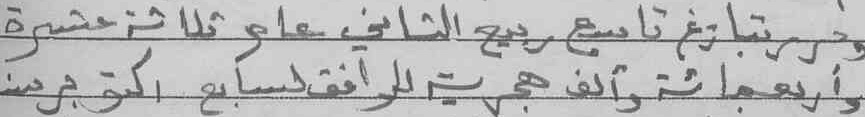 وحرر بتاريخ تاسع ربيع الثاني عام ثلاثة عشرة
وأربعمائة وألف هجرية الموافق لسابع اكتوبر من